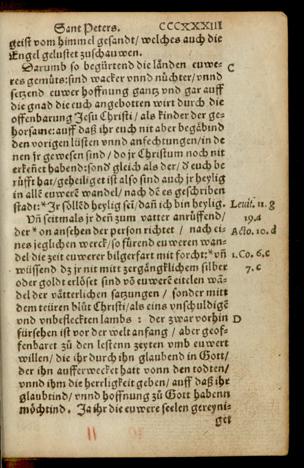 Sant Peters. CCCXXXIII
geist vom himmel gesandt/ welches auch die
Engel gelustet zuschauwen.
Darumb so begürtend die länden euwe- C
res gemüts: sind wacker vnnd nüchter/ vnnd
setzend euwer hoffnung gantz vnd gar auff
die gnad die euch angebotten wirt durch die
offenbarung Jesu Christi/ als kinder der ge-
horsame: auff daß ihr euch nit aber begäbind
den vorigen lüsten vnnd anfechtungen/ in de
nen jr gewesen sind/ do jr Christum noch nit
erkeñet habend: sond gleich als der/ d' euch be
rüfft hat/ geheiliget ist also sind auch jr heylig
in allẽ euwerẽ wandel/ nach dẽ es geschriben
stadt: * Jr söllẽd heylig sein/ dañ ich bin heylig. Leuit. 11. g
Vñ seitmals jr deñ zum vatter anrüffend/ 19.a
der * on ansehen der person richtet / nach ei- Acto. 10. d
nes jeglichen werck/ so fürend euweren wan-
del die zeit euwerer bilgerfart mit forcht: * vñ 1.Co. 6. c
wüssend dz jr nit mitt zergängklichem silber 7. c
oder goldt erlöset sind võ euwerẽ eitelen wã-
del der vätterlichen satzungen / sonder mitt
dem teüren blůt Christi/ als eins vnschuldigẽ
vnd vnbefleckten lambs : der zwar vorhin D
fürsehen ist vor der welt anfang / aber geof-
fenbaret zů den lesten zeyten vmb euwert
willen/ die ihr durch ihn glaubend in Gott/
der ihn aufferweckt hatt vonn den todten/
vnnd ihm die herrligkeit geben/ auff daß ihr
glaubtind/ vnnd hoffnung zů Gott habenn
möchtind. Ja ihr die euwere seelen gereyni-
get